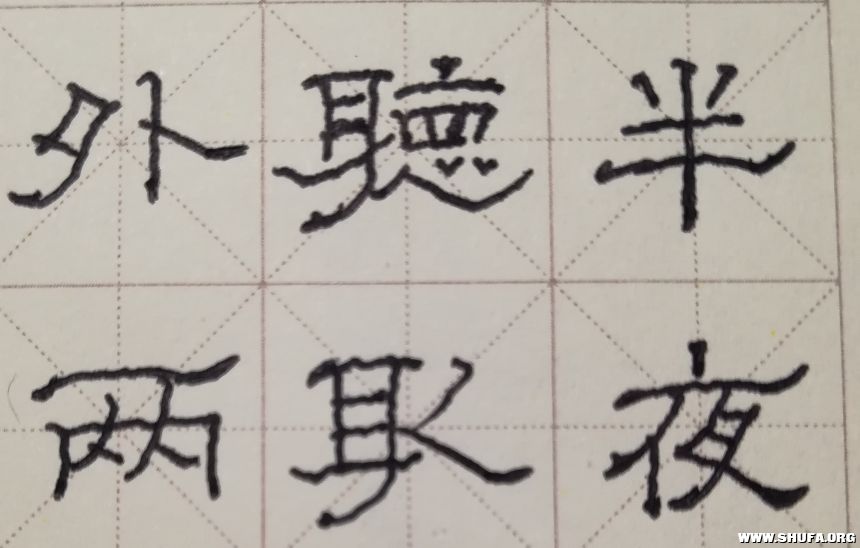 半夜
聽取
外兩
WWW.SHUFA.ORG